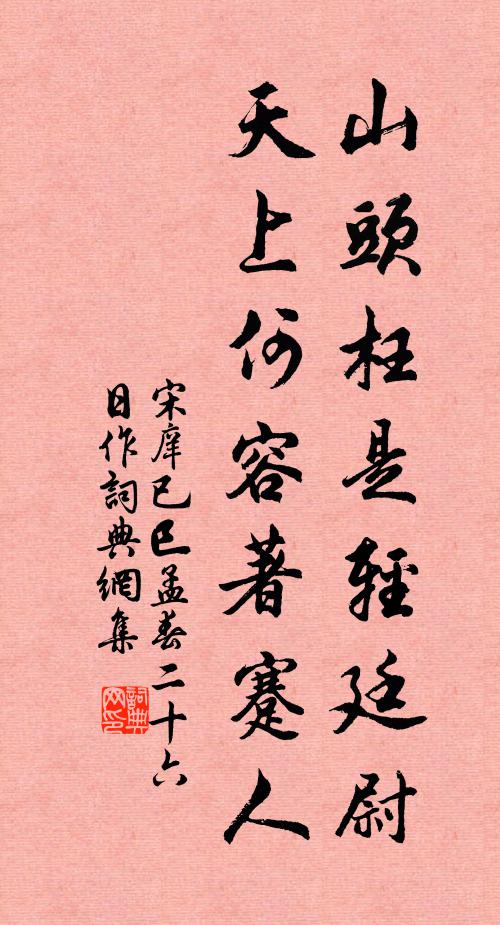 山頭枉是輕廷尉
天上何容著蹇人
宋庠己巳孟春二十六
日作詞典網集
詞典网印